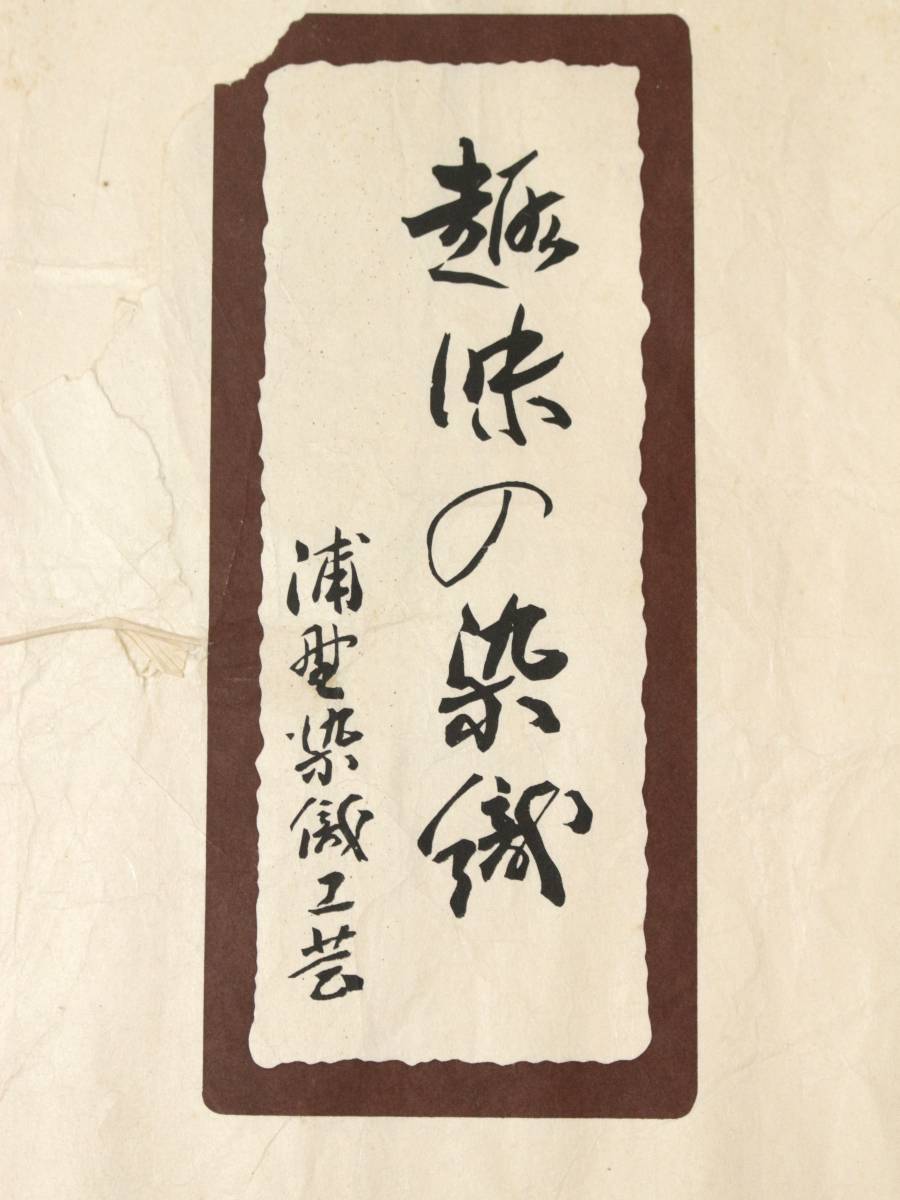 趣味の染織
浦野染織工芸